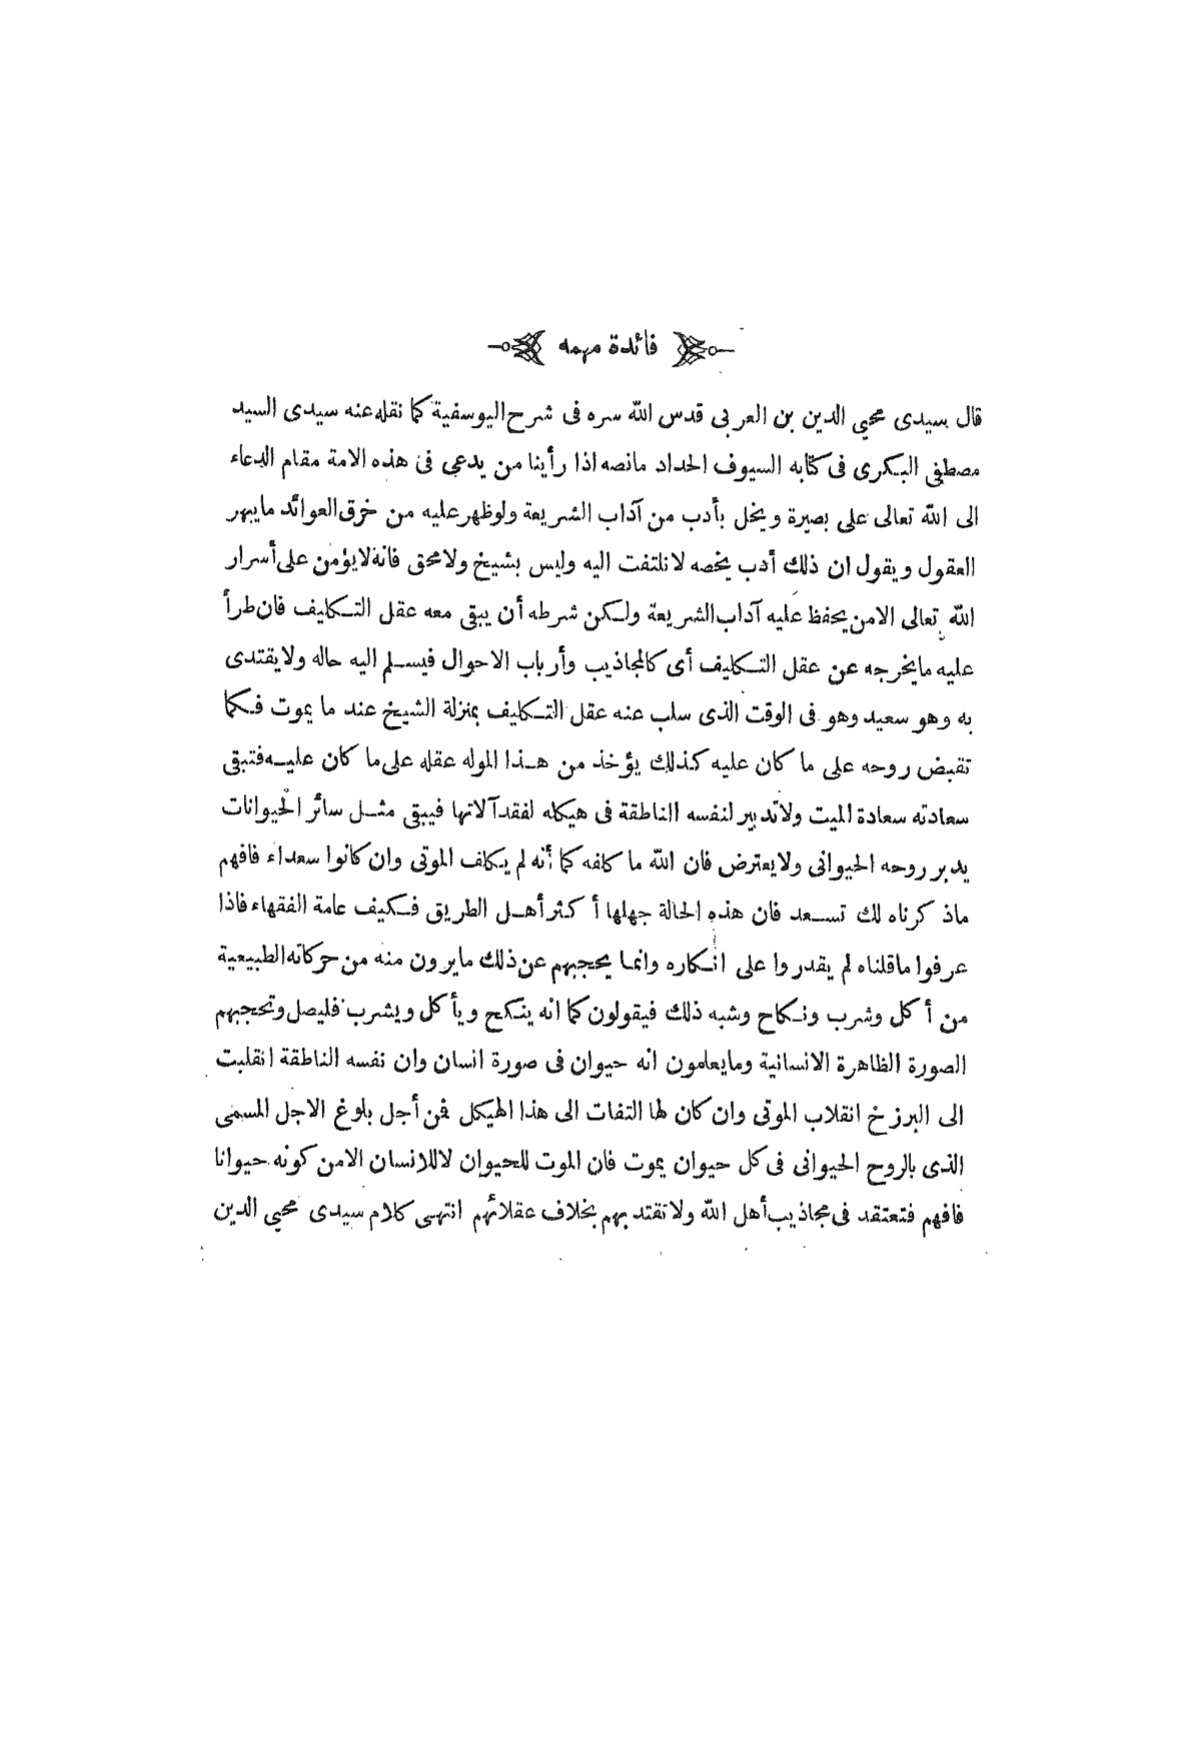 فائدة مهمه
قال سيدى محيى الدين بن العربى قدس الله سره فى شرح اليوسفية كما نقله عنه سيدى السيد
مصطفى البكرى فى كتابه السيوف الحداد مانصه اذا رأينا من يدعى فى هذه الامة مقام الدعاء
الى الله تعالى على بصيرة ويخل بأدب من آداب الشريعة ولوظهر عليه من خرق العوائد مايبهر
العقول ويقول ان ذلك أدب يخصه لانلتفت اليه وليس بشيخ ولامحق فانه لايؤمن على أسرار
الله تعالى الامن يحفظ عليه آداب الشريعة ولكن شرطه أن يبقى معه عقل التكليف فان طرأ
عليه مايخرجه عن عقل التكليف أى كالمجاذيب وأرباب الاحوال فيسلم اليه حاله ولايقتدى
به وهو سعيد وهو فى الوقت الذى سلب عنه عقل التكليف بمنزلة الشيخ عند ما يموت فكما
تقبض روحه على ما كان عليه كذلك يؤخذ من هذا الموله عقله على ما كان عليه فتبقى
سعادته سعادة الميت ولاتدبير لنفسه الناطقة فى هيكله لفقد آلاتها فيبقى مثل سائر الحيوانات
يدبر روحه الحيوانى ولايعترض فان الله ما كلفه كما أنه لم يكلف الموتى وان كانوا سعداء فافهم
ماذ كرناه لك تسعد فان هذه الحالة جهلها أكثر أهل الطريق فكيف عامة الفقهاء فاذا
عرفوا ماقلناه لم يقدروا على انكاره وانما يحجبهم عن ذلك مايرون منه من حركاته الطبيعية
من أكل وشرب ونكاح وشبه ذلك فيقولون كما انه ينكح ويأكل ويشرب فليصل وتحجبهم
الصورة الظاهرة الانسانية ومايعلمون انه حيوان فى صورة انسان وان نفسه الناطقة انقلبت
الى البرزخ انقلاب الموتى وان كان لها التفات الى هذا الهيكل فمن أجل بلوغ الاجل المسمى
الذى بالروح الحيوانى فى كل حيوان يموت فان الموت للحيوان لاللانسان الامن كونه حيوانا
فافهم فتعتقد فى مجاذيب أهل الله ولاتقتد بهم بخلاف عقلائهم انتهى كلام سيدى محيى الدين